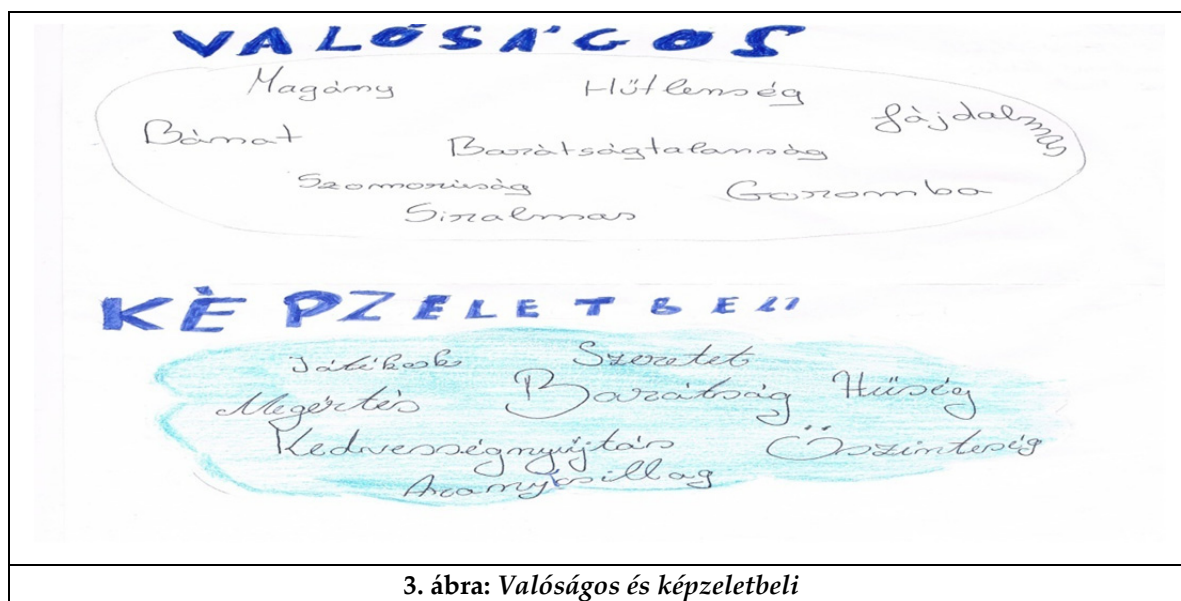 VALÓSÁGOS
Magány Hűtlenség
Bánat fájdalmas
Barátságtalanság
Szomorúság Goromba
Siralmas
KÈPZELETBELI
Játékok Szeretet
Megértés Barátság Hűség
Kedvességnyújtás Őszinteség
Aranycsillag
3. ábra: Valóságos és képzeletbeli